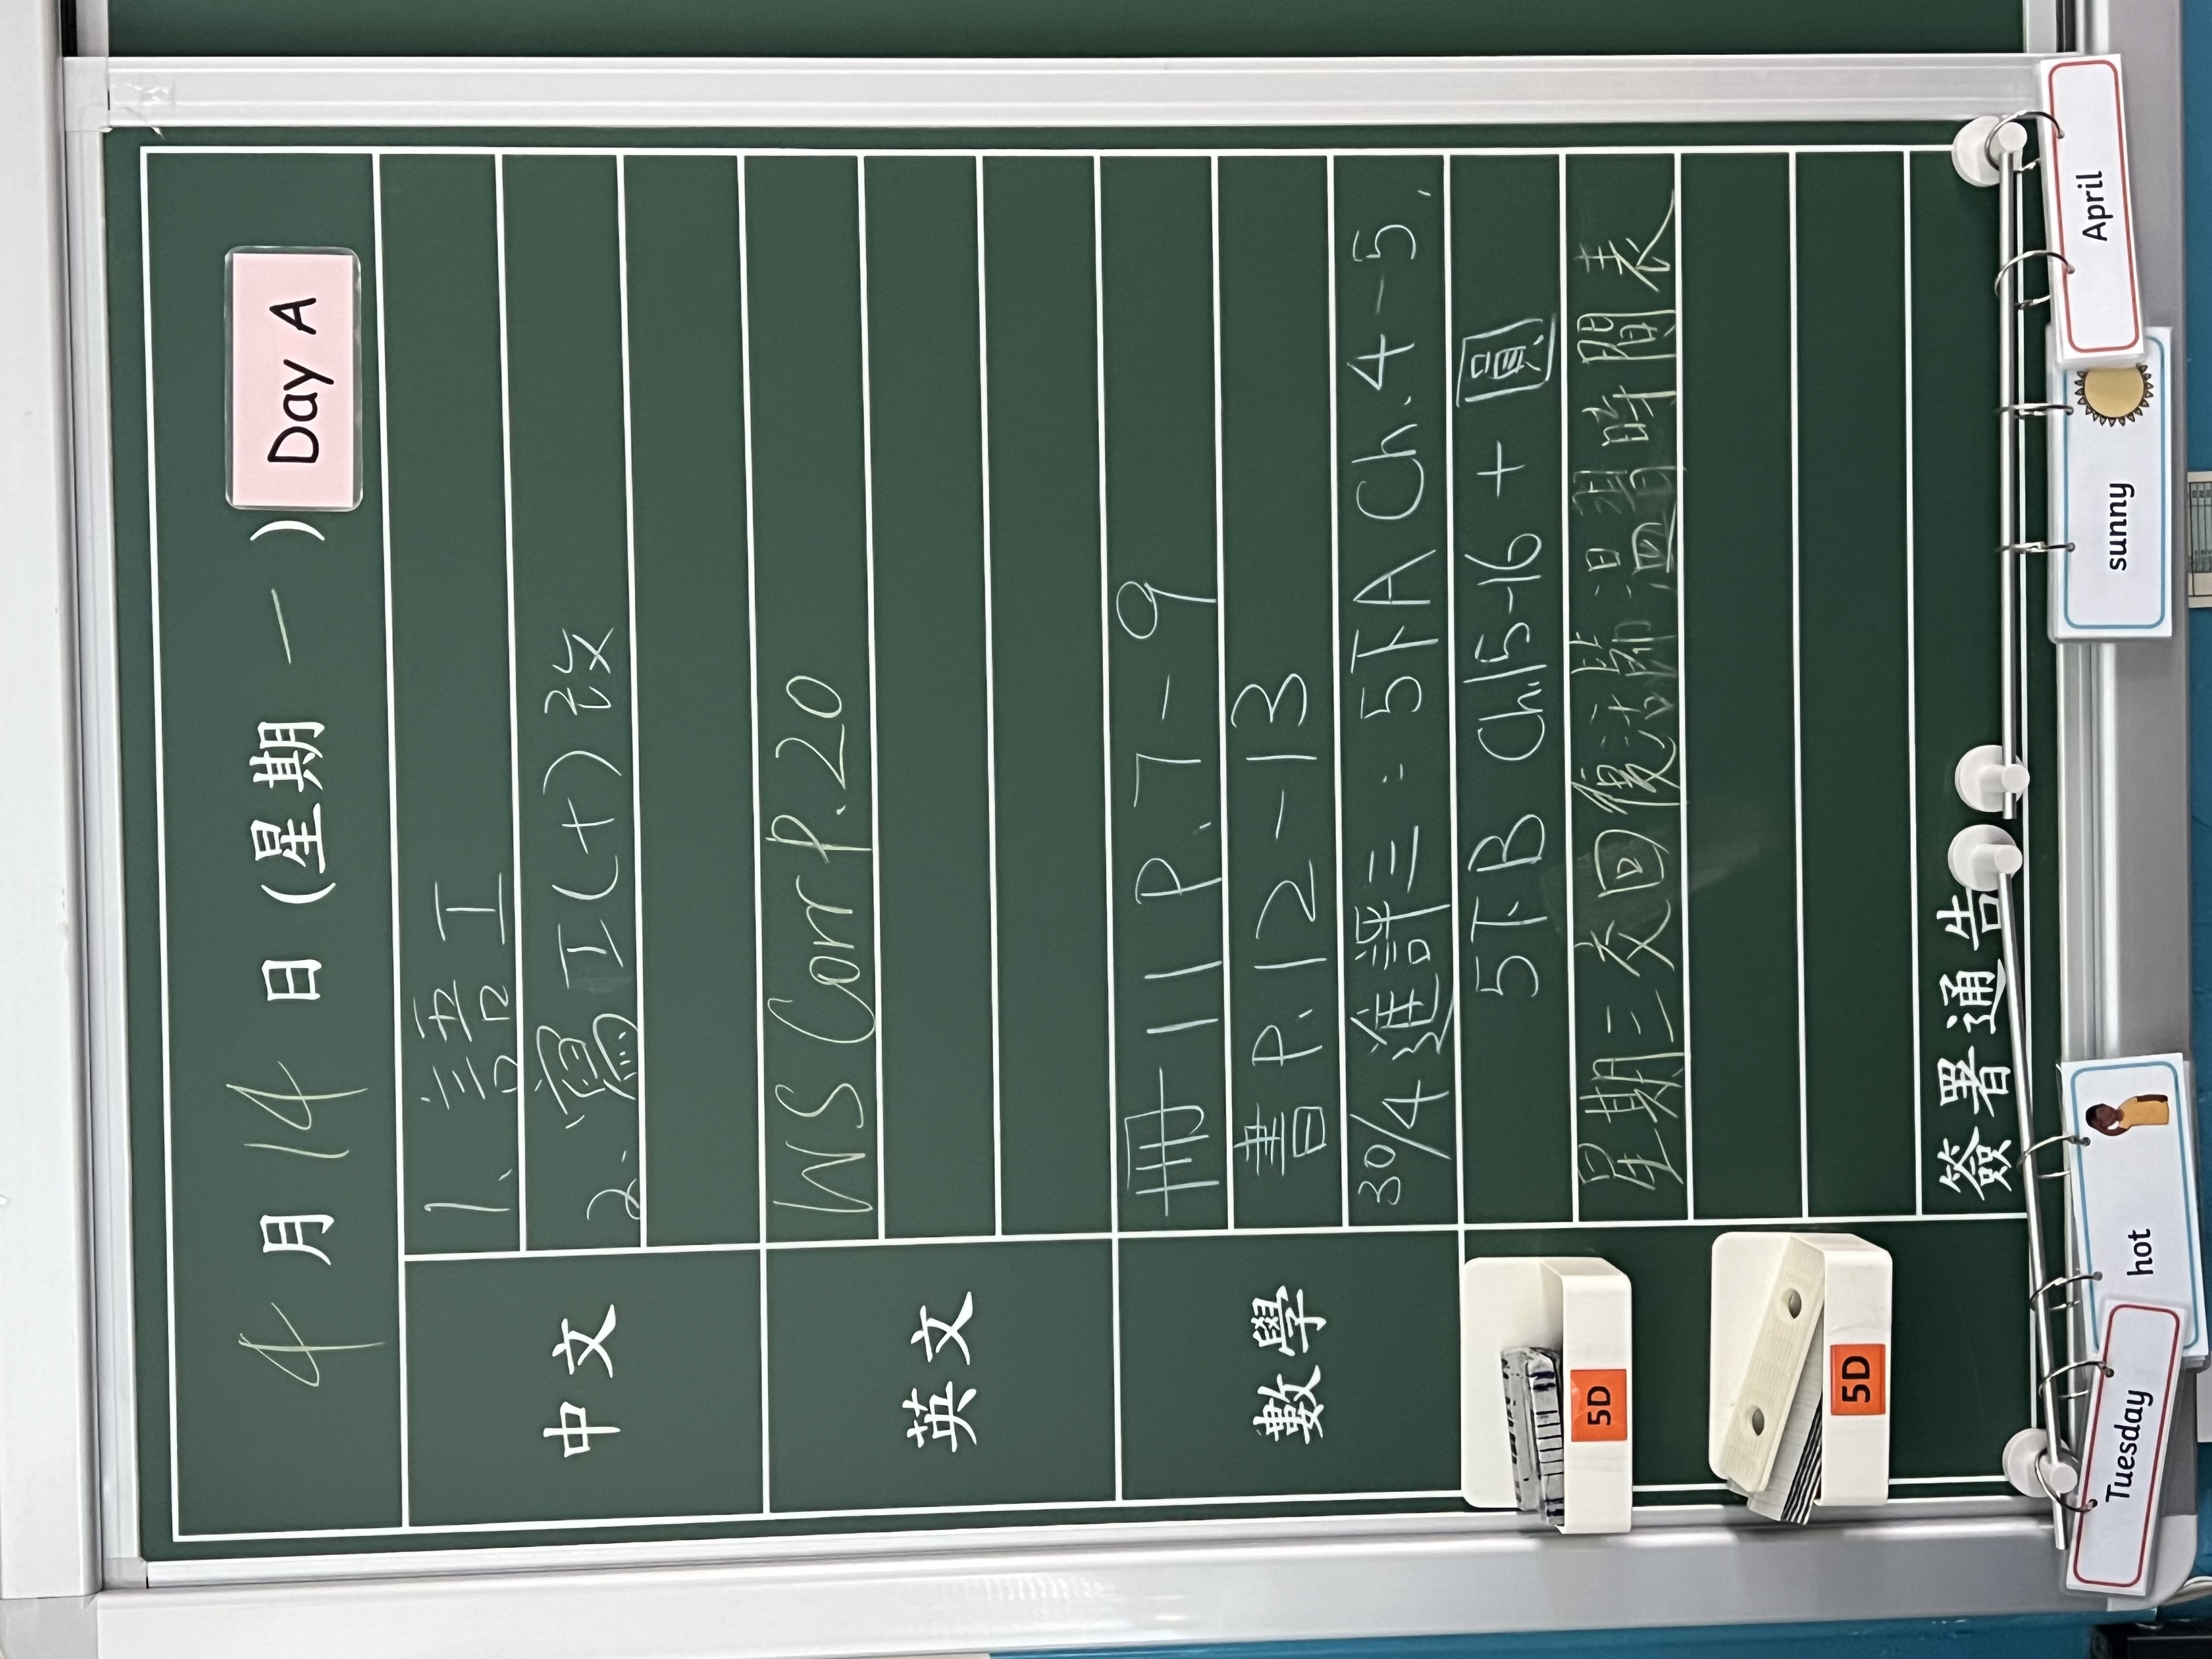 4月14日(星期一) Day A
中文
1. 語工
2. 寫工(十)改
英文
WS Corr P.20
數學
冊11 P.7-9
書 P.12-13
30/4 進評三：5下A Ch.4-5,
5下B Ch.15-16 + 圓
星期三交回復活節温習時間表
簽署通告
5D
5D
Tuesday
hot
sunny
April